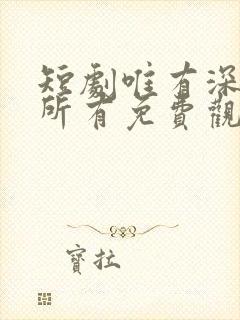 短劇唯有深
所有免費觀
寶拉